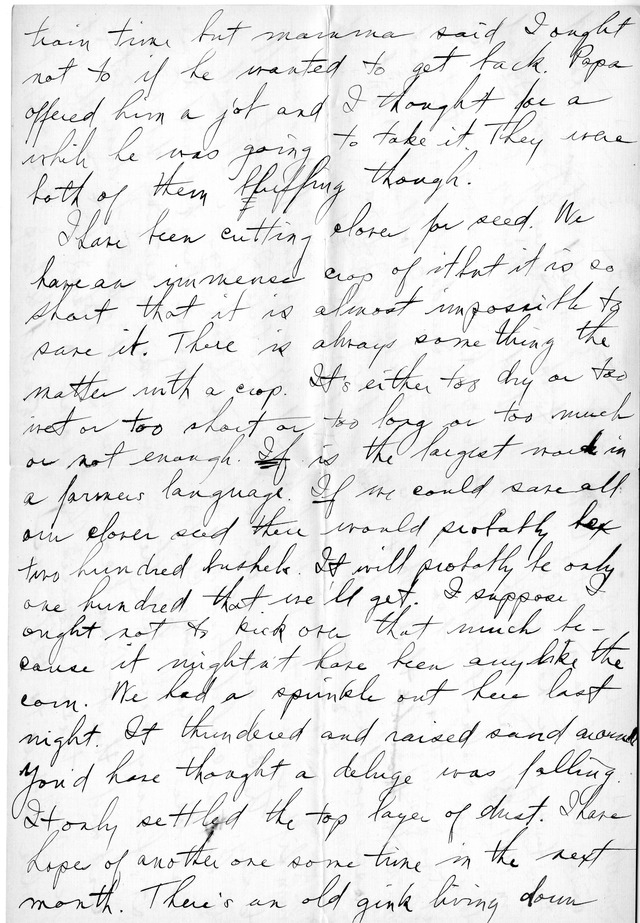 train time but mamma said I ought
not to if he wanted to get back. Papa
offered him a job and I thought for a
while he was going to take it. They were
both of them bluffing though.
I have been cutting clover for seed. We
have an immense crop of it but it is so
short that it is almost impossible to
save it. There is always something the
matter with a crop. It's either too dry or too
wet or too short or too long or too much
or not enough. If is the largest word in
a farmers language. If we could save all
our clover seed there would probably be
two hundred bushels. It will probably be only
one hundred that we'll get. I suppose I
ought not to kick over that much be-
cause it mightn't have been any like the
corn. We had a sprinkle out here last
night. It thundered and raised sand around
you'd have thought a deluge was falling.
It only settled the top layer of dust. I have
hope of another one some time in the next
month. There's an old gink living down